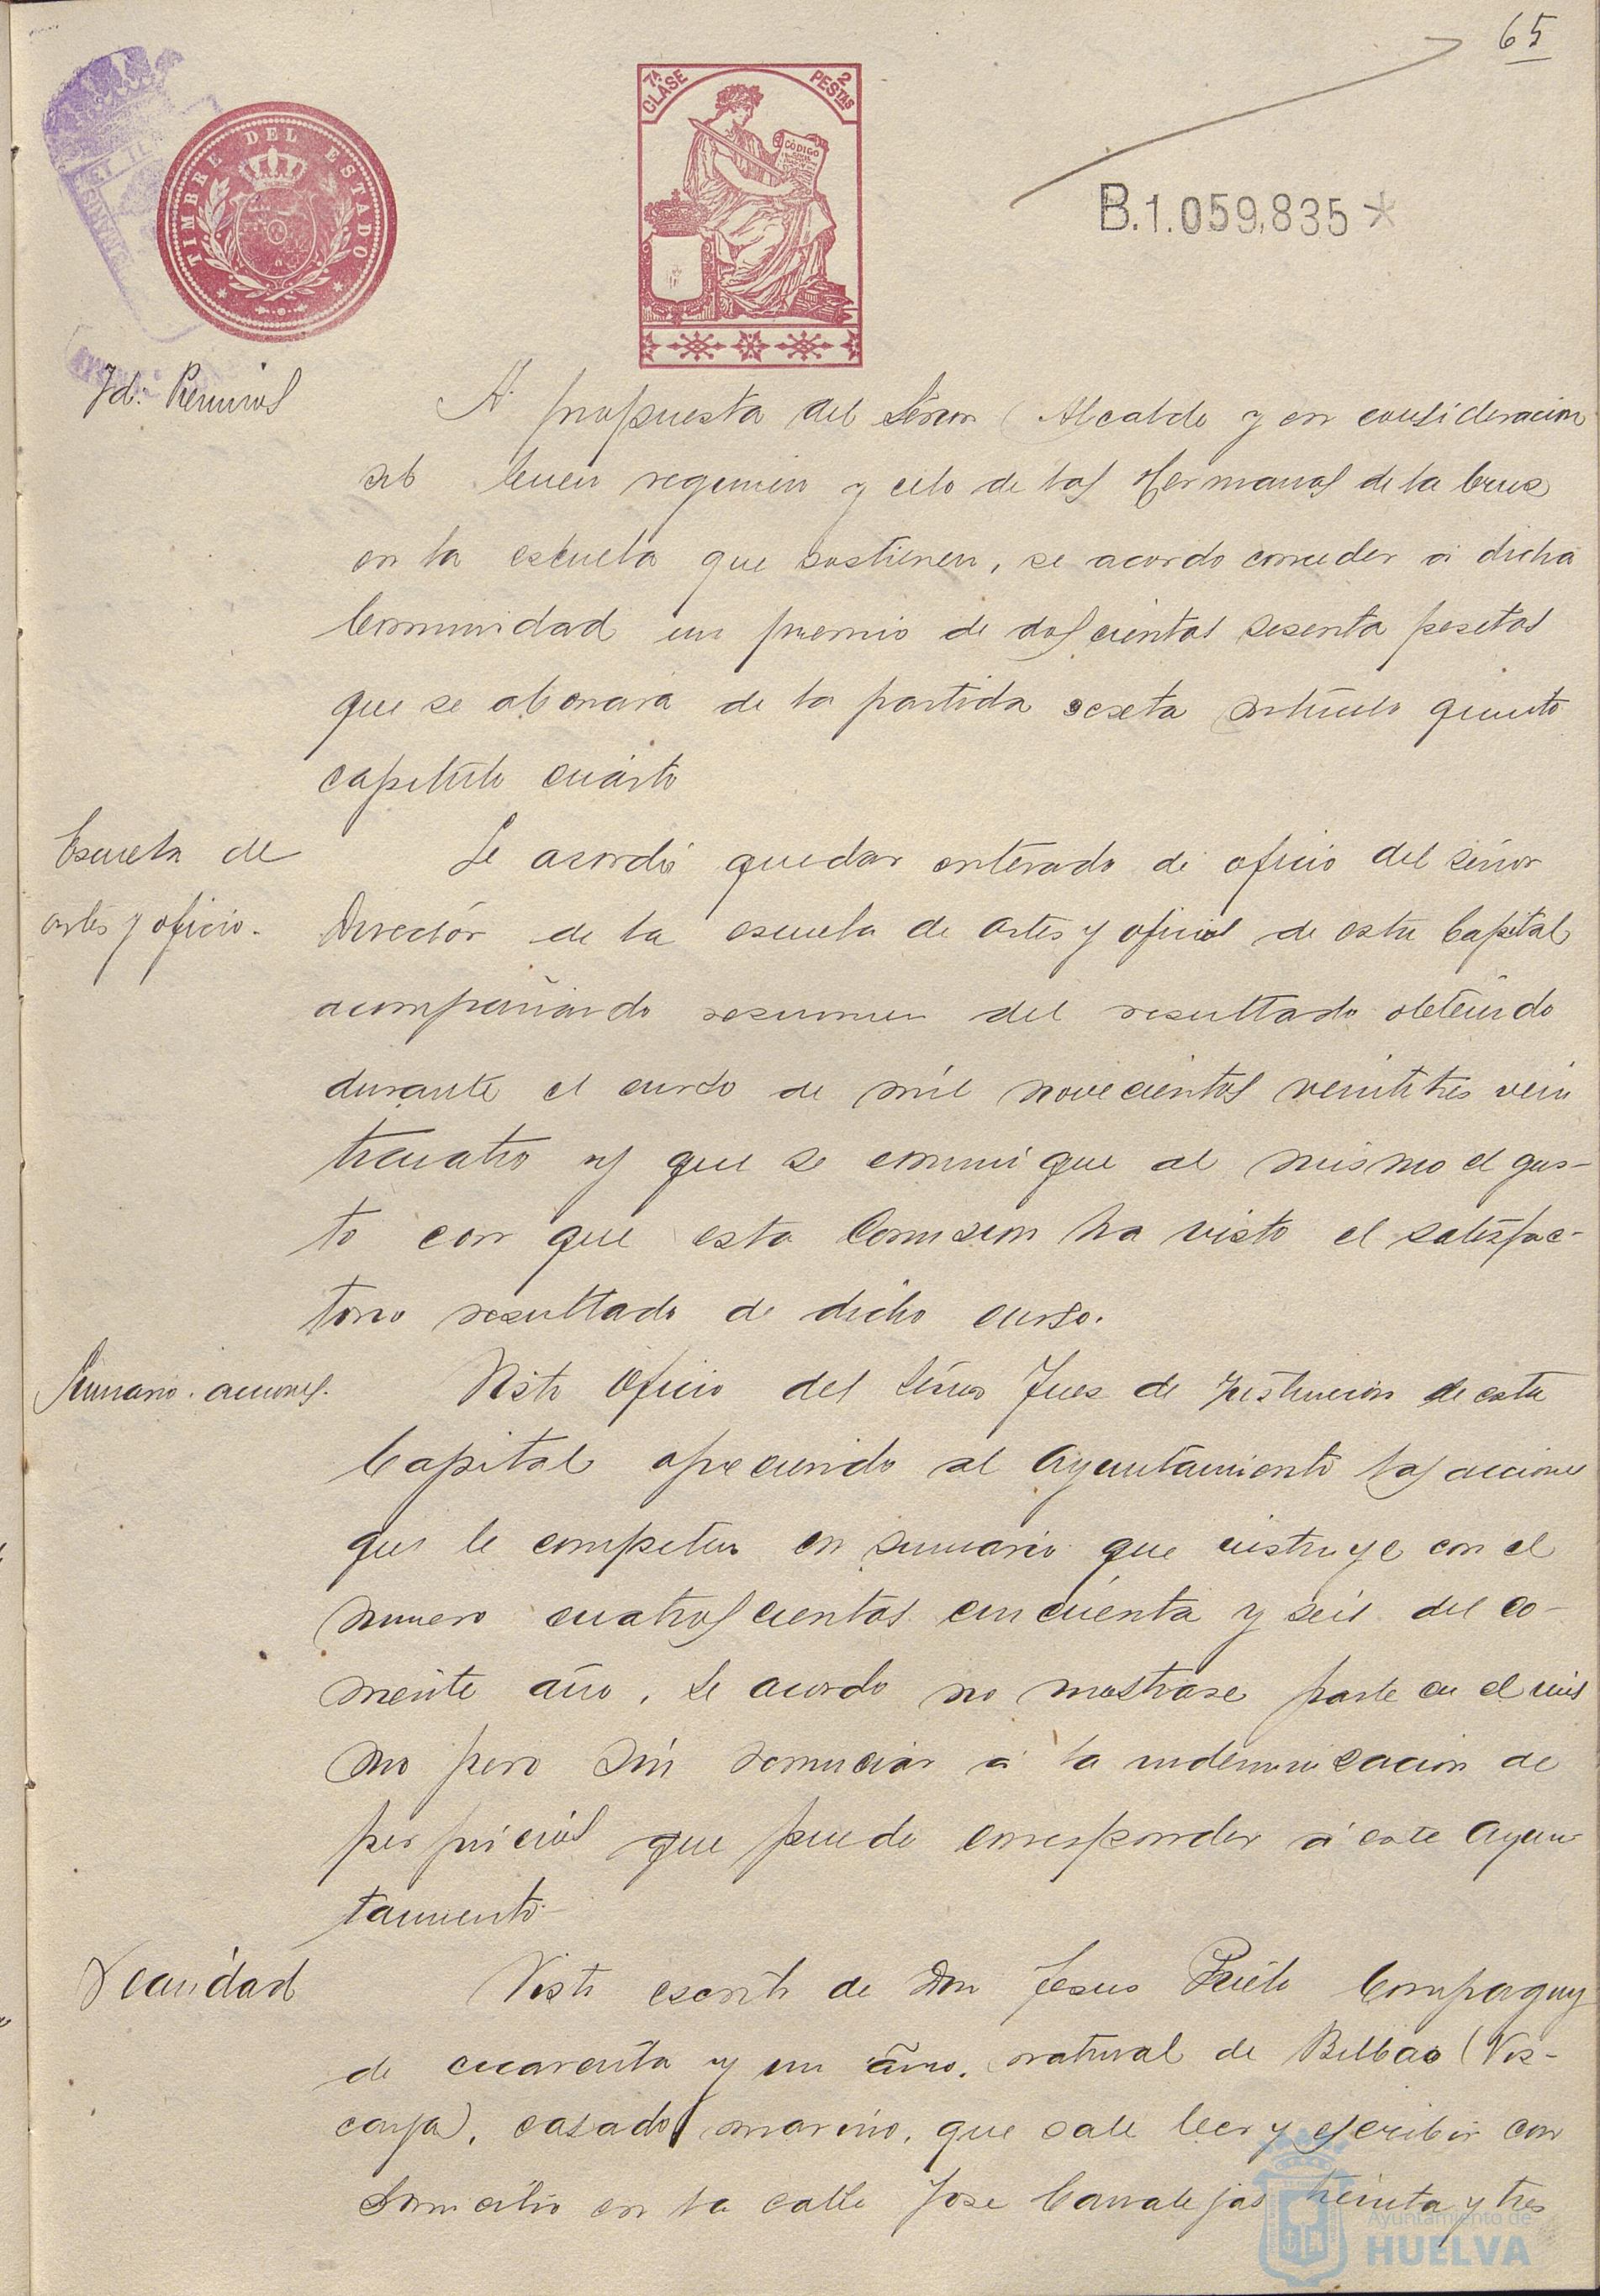 65
TIMBRE DEL ESTADO
7ª CLASE
2 PESTAS
CODIGO
B.1.059,835*
Id: Premios
A propuesta del Señor Alcalde y en consideracion
al buen regimen y celo de las Hermanas de la Cruz
en la escuela que sostienen, se acordo conceder a dicha
Comunidad un premio de doscientas sesenta pesetas
que se abonara de la partida sexta articulo quinto
capitulo cuarto
Escuela de
artes y oficio.
Se acordó quedar enterado de oficio del señor
Director de la escuela de artes y oficios de esta Capital
acompañando resumen del resultado obtenido
durante el curso de mil novecientos veintitres vein
ticuatro y que se comunique al mismo el gus-
to con que esta Comision ha visto el satisfac-
torio resultado de dicho curso.
Sumario. acciones.
Visto oficio del Señor Juez de Instruccion de esta
Capital ofreciendo al Ayuntamiento las acciones
que le competen en sumario que instruye con el
numero cuatroscientos cincuenta y seis del co-
rriente año, se acordo no mostrarse parte en el mis
mo pero sin renunciar a la indemnizacion de
perjuicios que puede corresponder a este Ayun
tamiento.
Vecindad
Visto escrito de Don Jesus Prieto Compagny
de cuarenta y un año, natural de Bilbao (Viz-
caya), casado, marino, que sabe leer y escribir con
domicilio en la calle Jose Canalejas treinta y tres
Ayuntamiento de
HUELVA